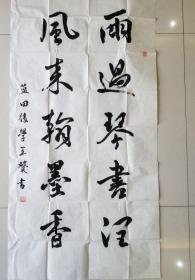 雨過琴書潤
風來翰墨香
藍田後學王贊書